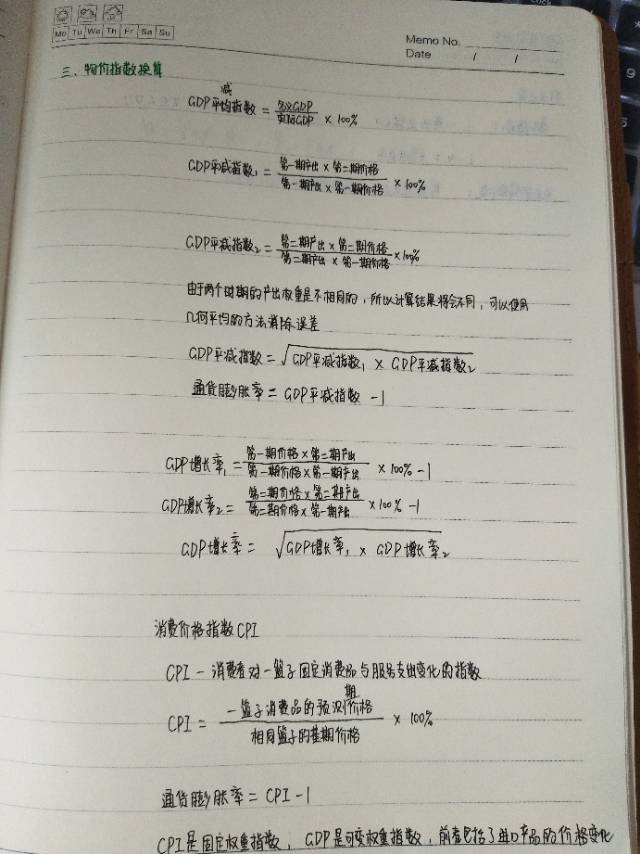 Mo Tu We Th Fr Sa Su
Memo No.
Date / /
三、物价指数换算
GDP平减均指数 = 名义GDP / 实际GDP × 100%
GDP平减指数₁ = 第一期产出 × 第二期价格 / 第一期产出 × 第一期价格 × 100%
GDP平减指数₂ = 第二期产出 × 第二期价格 / 第二期产出 × 第一期价格 × 100%
由于两个时期的产出权重是不相同的，所以计算结果将会不同，可以使用
几何平均的方法消除误差
GDP平减指数 = √GDP平减指数₁ × GDP平减指数₂
通货膨胀率 = GDP平减指数 -1
GDP增长率₁ = 第一期价格 × 第二期产出 / 第一期价格 × 第一期产出 × 100% -1
GDP增长率₂ = 第二期价格 × 第二期产出 / 第二期价格 × 第一期产出 × 100% -1
GDP增长率 = √GDP增长率₁ × GDP增长率₂
消费价格指数CPI
CPI — 消费者对一篮子固定消费品与服务支出变化的指数
CPI = 一篮子消费品的预测期价格 / 相同篮子的基期价格 × 100%
通货膨胀率 = CPI -1
CPI是固定权重指数，GDP是可变权重指数，前者包括了进口产品的价格变化